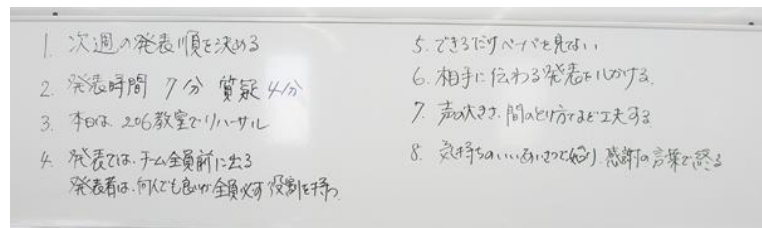 1. 次週の発表順を決める
2. 発表時間 7分 質疑4分
3. 本日は、206教室でリハーサル
4. 発表では、チーム全員前に出る
発表者は、何人でも良いが全員必ず役割を持つ
5. できるだけペーパを見ない
6. 相手に伝わる発表を心がける。
7. 声の大きさ、間のとり方など工夫する
8. 気持ちのいいあいさつで始り、感謝の言葉で終る